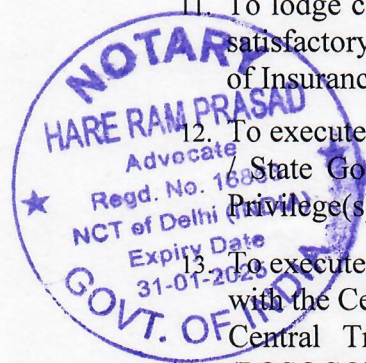 11. To lodge c
satisfactory
of Insuranc
12. To execute
/ State Go
Privilege(s
13. To execute
with the Ce
Central Tr
NOTARY
HARE RAM PRASAD
Advocate
Regd. No.
NCT of Delhi (INDIA)
Expiry Date
31-01-2025
GOVT. OF INDIA